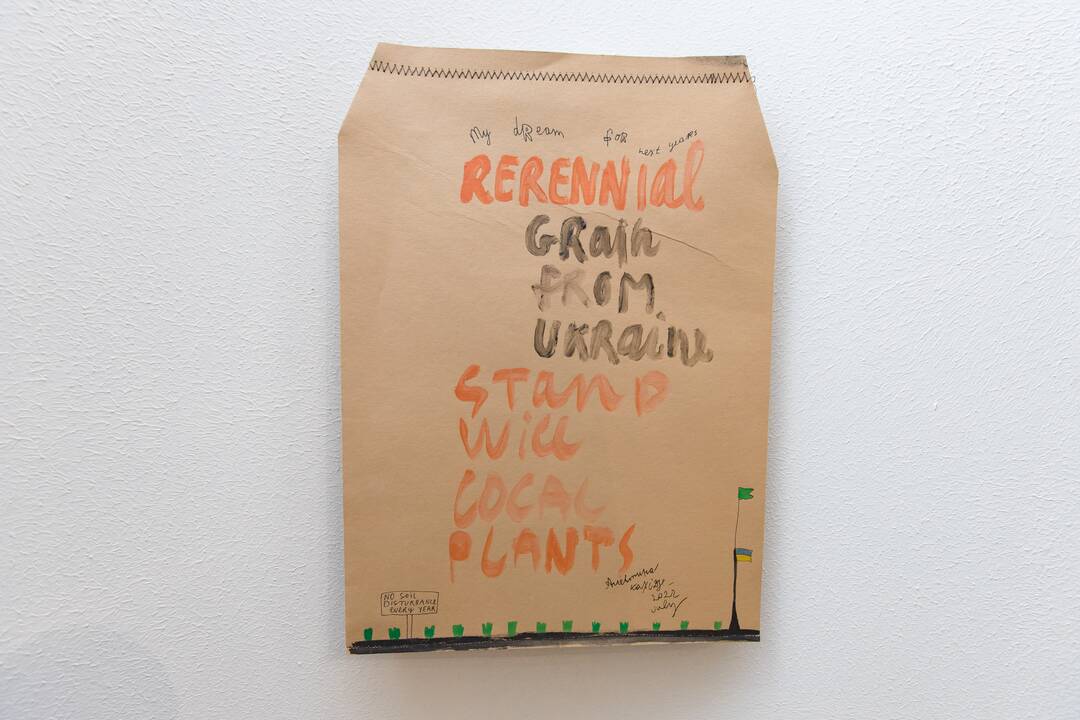 My dream for next years
RERENNIal
GRain
FROM
UKRaine
STanD
Will
LOCAL
PLANTS
2022
July
NO SOIL
DISTURBANCE
EVERY YEAR